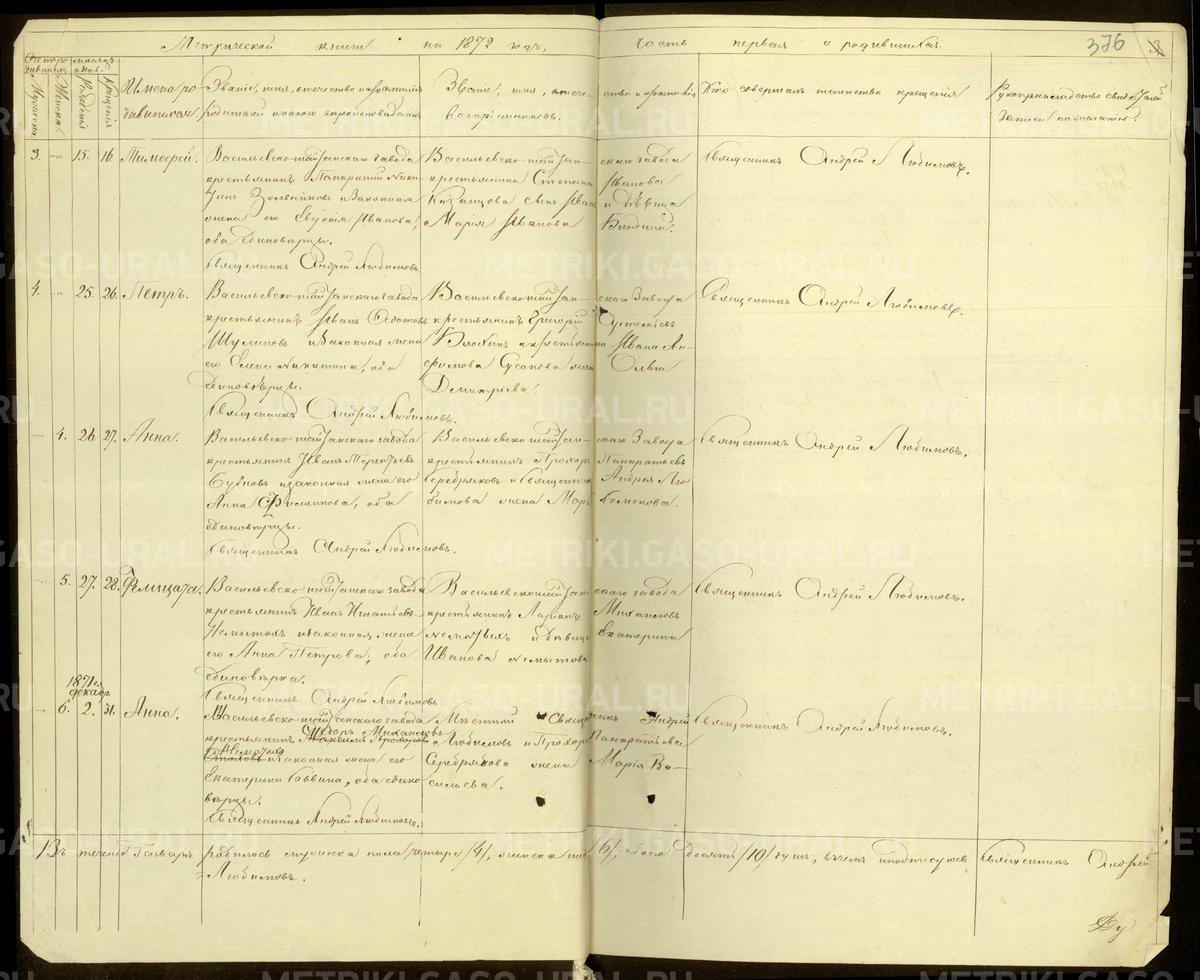 Метрической книги на 1872 годъ, часть первая о родившихся.
376
Мужеска.
Женска.
Рожденія
Крещенія
Имена ро-
дившихся.
Званіе, имя, отчество и фамилія
родителей и какого вѣроисповѣданія
Званіе, имя, отече-
ство и фамилія
воспріемниковъ.
Кто совершалъ таинство крещенія
Рукоприкладство свидѣтелей
записи по желанію.
3. 15. 16. Тимофей.
Васильевско-шайтанскаго завода
крестьянинъ Панкратій Ники-
и законная
жена его Евдокія Иванова,
оба единовѣрцы.
Священникъ Андрей Любимовъ
Васильевско-шайтан-
скаго завода
крестьянина Степана Иванова
Казанцова сынъ Иванъ и дѣвица
Марія Иванова
Священникъ Андрей Любимовъ.
4. 25. 26. Петръ.
Васильевско-шайтанскаго завода
крестьянинъ Иванъ Федотовъ
и законная жена
его Елена Никитина, оба
единовѣрцы.
Священникъ Андрей Любимовъ.
Васильевско шайтан-
скаго завода
крестьянинъ Григорій
и крестьянина Ивана Ан-
фимова Сусанова жена Ольга
Димитріева.
Священникъ Андрей Любимовъ.
4. 26. 27. Анна.
Васильевско-шайтанскаго завода
крестьянинъ Иванъ Терентьевъ
Бубновъ и законная жена его
Анна оба
единовѣрцы.
Священникъ Андрей Любимовъ.
Васильевско шайтан-
скаго завода
крестьянинъ Прохоръ Панкратьевъ
Серебряковъ и священника Андрея Лю-
бимова жена Марія
Священникъ Андрей Любимовъ.
5. 27. 28. Фелицата.
Васильевско-шайтанскаго завода
крестьянинъ Иванъ Игнатьевъ
Немытыхъ и законная жена
его Анна Петрова, оба
единовѣрка.
Священникъ Андрей Любимовъ.
Васильевско шайтан-
скаго завода
крестьянинъ Ларіонъ Михаиловъ
Немытыхъ и дѣвица Екатерина
Иванова Немытова
Священникъ Андрей Любимовъ.
1871 г.
декабр.
6. 2. 31. Анна.
Васильевско-шайтанскаго завода
Ѳедоръ Михаиловъ
крестьянинъ
Немытыхъ
и законная жена его
Екатерина Саввина, оба едино-
вѣрцы.
Священникъ Андрей Любимовъ.
Мѣстный Священникъ Андрей
Любимовъ и Прохора Панкратьева
Серебрякова жена Марія Ва-
сильева.
Священникъ Андрей Любимовъ.
Въ теченіе Генваря родилось мужеска пола четыре /4/, женска шесть /6/, обоего десять /10/ душъ; въ чемъ и подписуюсь Священникъ Андрей
Любимовъ.